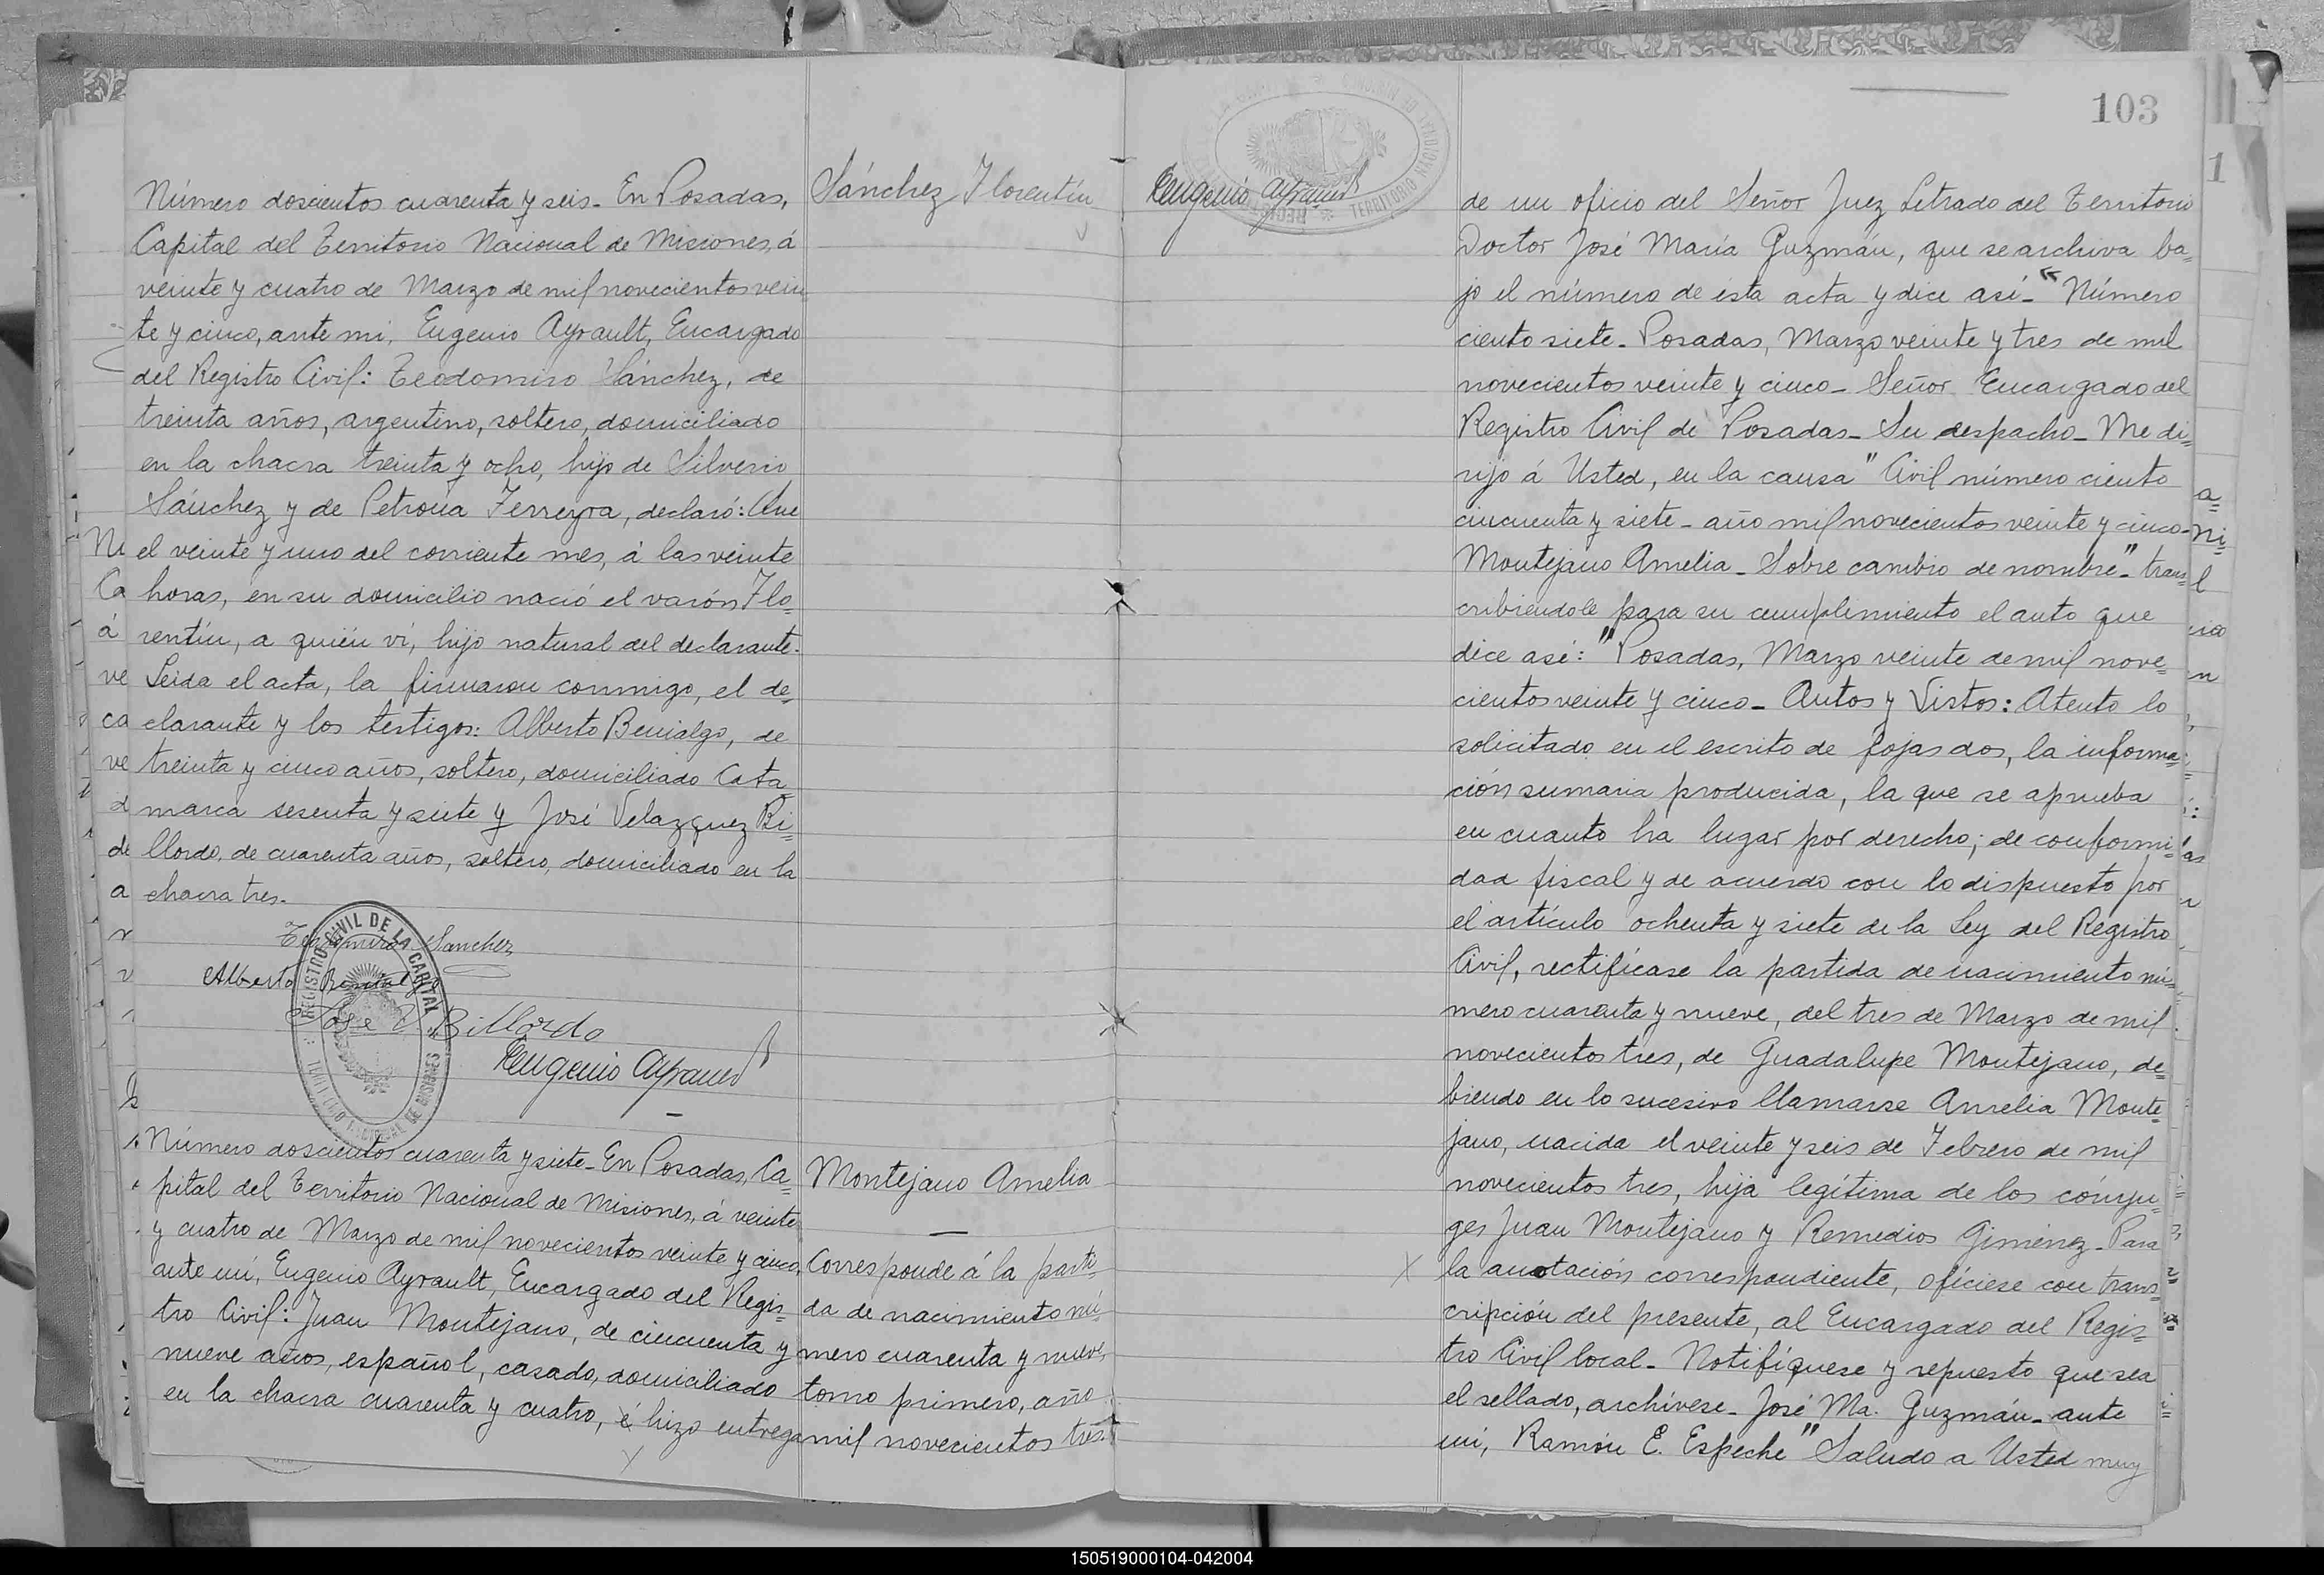 Número doscientos cuarenta y seis_ En Posadas,
Capital del Territorio Nacional de Misiones, á
veinte y cuatro de Marzo de mil novecientos vein
te y cinco, ante mí, Eugenio Ayrault, Encargado
del Registro Civil: Teodomiro Sánchez, de
treinta años, argentino, soltero, domiciliado
en la chacra treinta y ocho, hijo de Silverio
Sánchez y de Petrona Ferreyra, declaró: Que
el veinte y uno del corriente mes, á las veinte
horas, en su domicilio nació el varón Flo=
rentín, a quién ví, hijo natural del declarante.
Leida el acta, la firmaron conmigo, el de=
clarante y los testigos: Alberto Benialgo, de
treinta y cinco años, soltero, domiciliado Cata
marca sesenta y siete y José Velazquez Bi=
llordo, de cuarenta años, soltero, domiciliado en la
chacra tres.
Teodomiro Sanchez
Alberto
José V. Billordo
Eugenio Ayrault
REGISTRO CIVIL DE LA CAPITAL
TERRITORIO NACIONAL DE MISIONES
Número doscientos cuarenta y siete_ En Posadas, Ca=
pital del Territorio Nacional de Misiones, á veinte
y cuatro de Marzo de mil novecientos veinte y cinco,
ante mí, Eugenio Ayrault, Encargado del Regis=
tro Civil: Juan Montejano, de cincuenta y
nueve años, español, casado, domiciliado
en la chacra cuarenta y cuatro, é hizo entrega
Sánchez Florentín
Montejano Amelia
Corresponde á la parti=
da de nacimiento nú=
mero cuarenta y nueve,
tomo primero, año
mil novecientos tres.
Eugenio Ayrault
TERRITORIO NACIONAL DE MISIONES
103
1
de un oficio del Señor Juez Letrado del Territorio
Doctor José María Guzmán, que se archiva ba=
jo el número de esta acta y dice así_ "Número
ciento siete_ Posadas, Marzo veinte y tres de mil
novecientos veinte y cinco_ Señor Encargado del
Registro Civil de Posadas_ Su despacho_ Me di=
rijo á Usted, en la causa "Civil número ciento
cincuenta y siete_ año mil novecientos veinte y cinco_
Montejano Amelia_ Sobre cambio de nombre"_ trans=
cribiendole para su cumplimiento el auto que
dice así: "Posadas, Marzo veinte de mil nove=
cientos veinte y cinco_ Autos y Vistos: Atento lo
solicitado en el escrito de fojas dos, la informa=
ción sumaria producida, la que se aprueba
en cuanto ha lugar por derecho; de conformi=
dad fiscal y de acuerdo con lo dispuesto por
el artículo ochenta y siete de la Ley del Registro
Civil, rectifícase la partida de nacimiento nú=
mero cuarenta y nueve, del tres de Marzo de mil
novecientos tres, de Guadalupe Montejano, de=
biendo en lo sucesivo llamarse Amelia Monte=
jano, nacida el veinte y seis de Febrero de mil
novecientos tres, hija legítima de los cónyu=
ges Juan Montejano y Remedios Giménez_ Para
la anotación correspondiente, ofíciese con trans=
cripción del presente, al Encargado del Regis=
tro Civil local_ Notifíquese y repuesto que sea
el sellado, archívese_ José Ma. Guzmán_ ante
mí, Ramón E. Espeche" Saludo a Usted muy
150519000104-042004